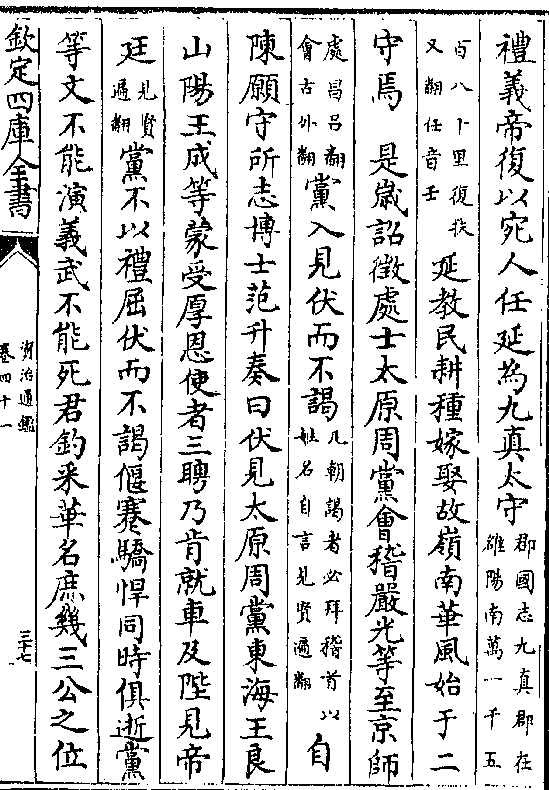 禮義帝復以宛人任延為九真太守郡國志九真郡在雒陽南萬一千五
百八十里復扶又翻任音壬延教民耕種嫁娶故嶺南華風始于二
守焉 是歲詔徵處士太原周黨會稽嚴光等至京師
處昌呂翻會古外翻黨入見伏而不謁凡朝謁者必拜稽首以姓名自言見賢遍翻自
陳願守所志博士范升奏曰伏見太原周黨東海王良
山陽王成等蒙受厚恩使者三聘乃肯就車及陛見帝
廷見賢遍翻黨不以禮屈伏而不謁偃蹇驕悍同時俱逝黨
等文不能演義武不能死君釣采華名庶幾三公之位
欽定四庫全書
資治通鑑
卷四十一
三十七